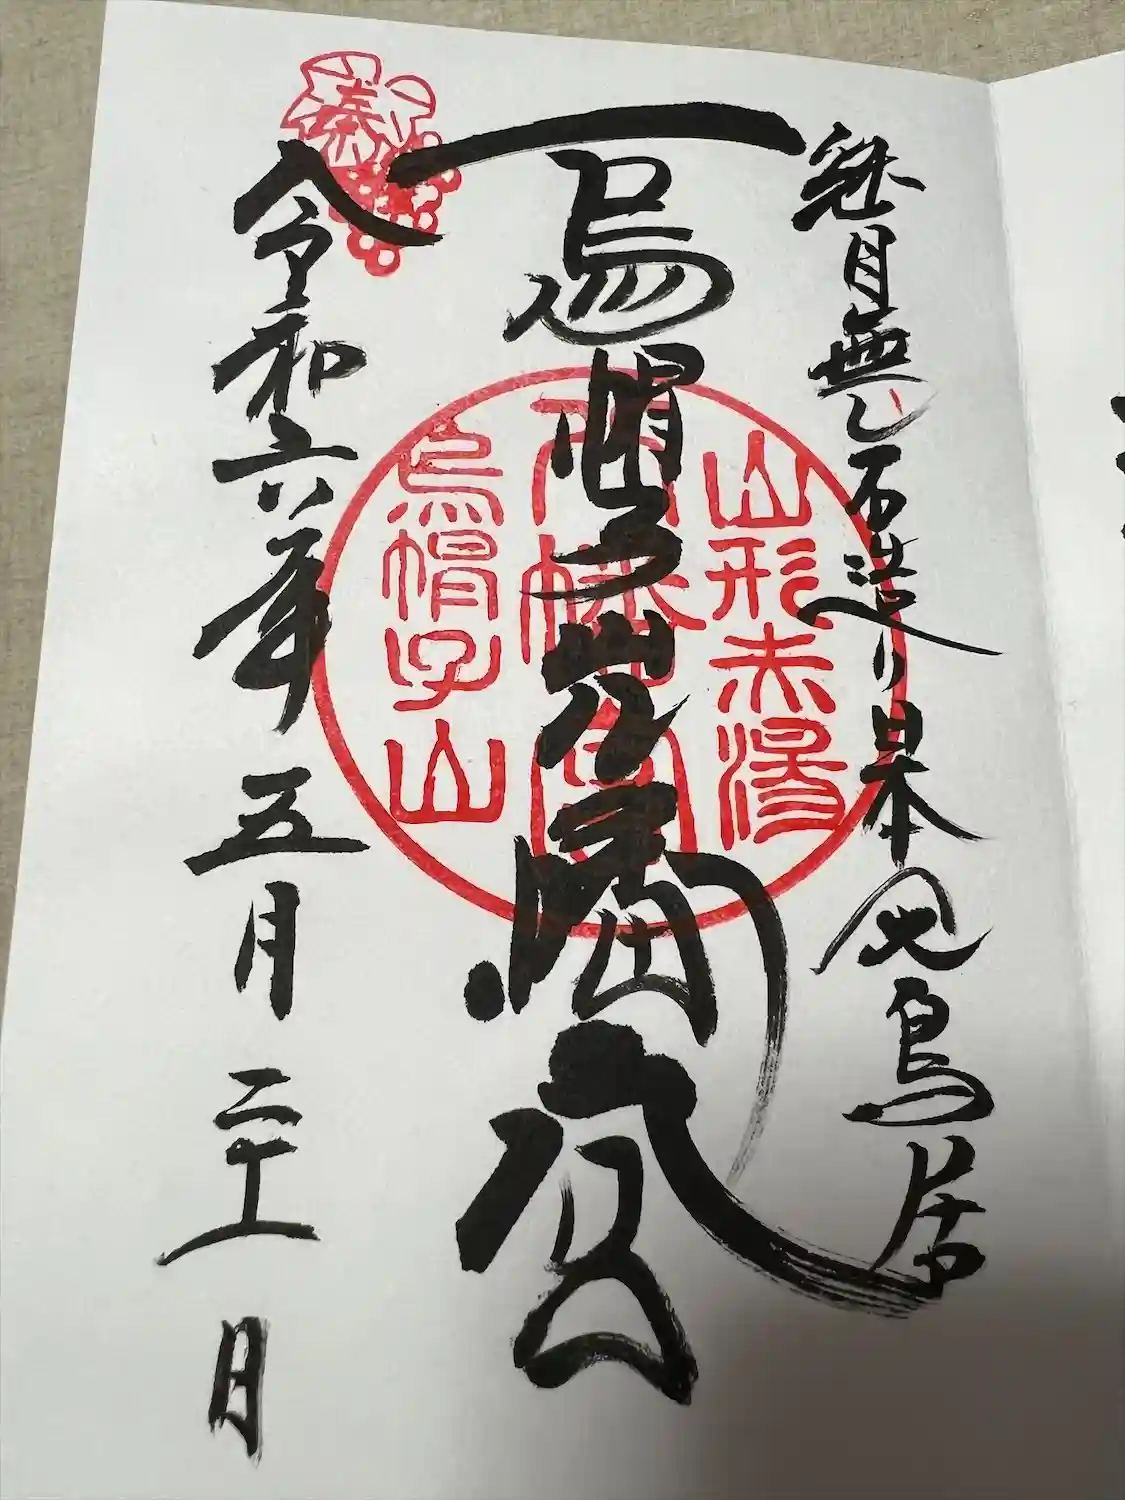 継目無し石造り日本
鳥居
烏帽子山八幡宮
山形赤湯
八幡宮
烏帽子山
令和六年五月二十一日